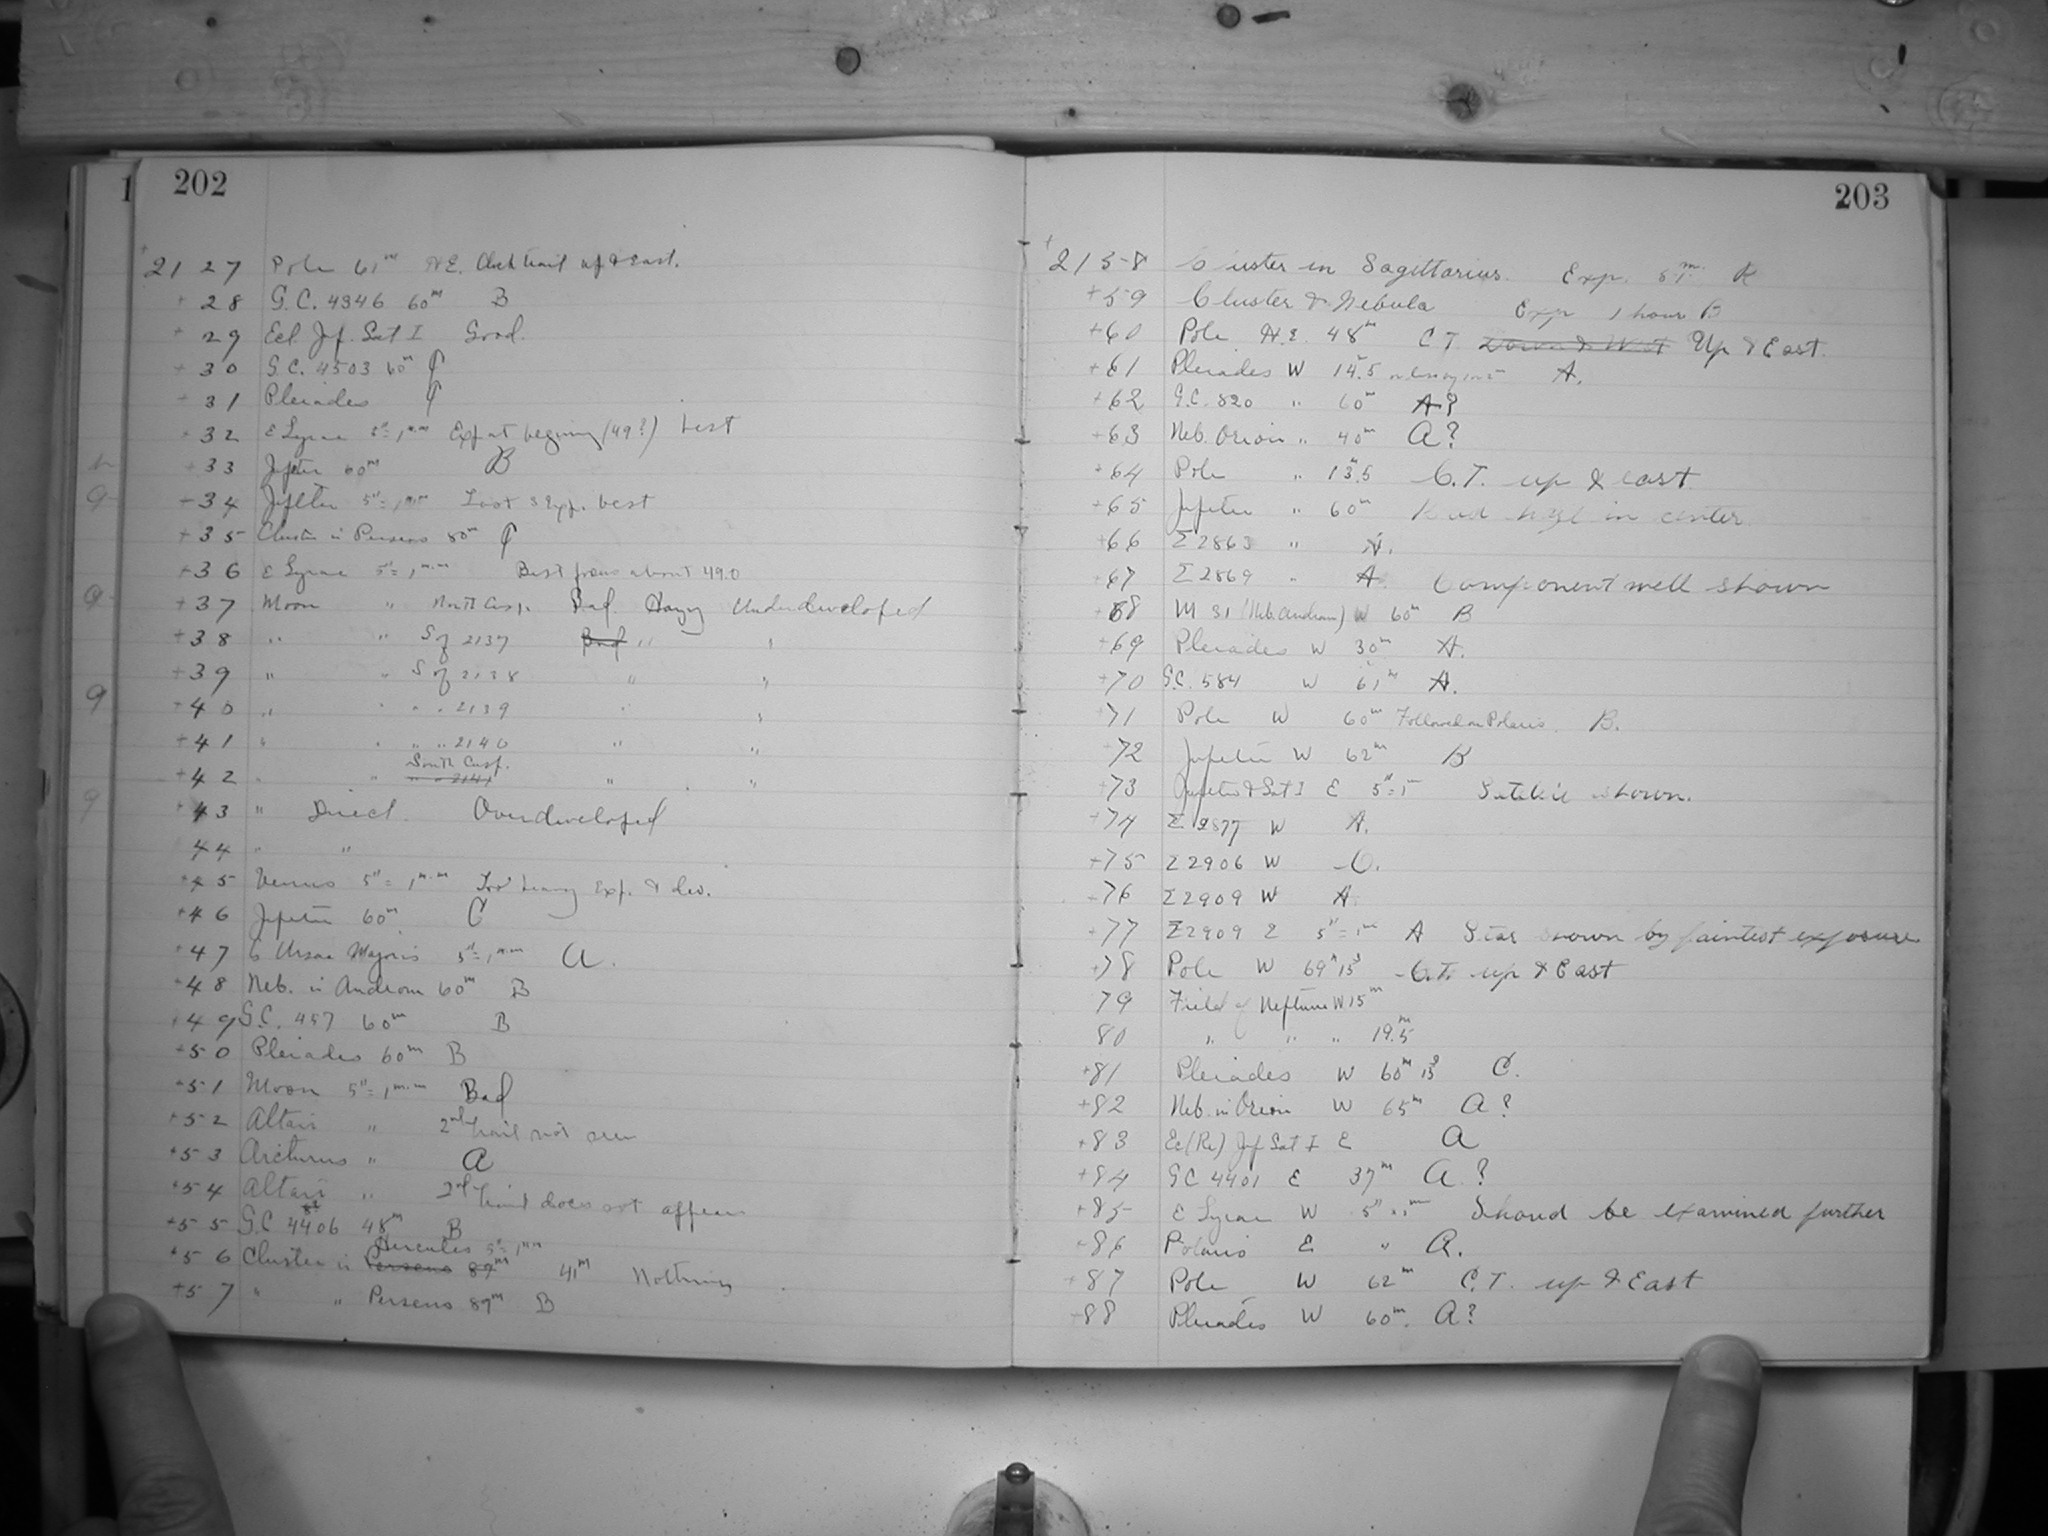 202
+2127 Pole 61m N.E. Clock trail up & East.
+28 G.C. 4346 60m B
+29 Ecl. Jup. Sat I Good.
+30 G.C. 4503 60m
+31 Pleiades
+32 ε Lyrae 5"=1mm Exp at begining (49?) best
+33 Jupiter 60m B
+34 Jupiter 5"=1mm Last 3 exp. best
+35 Cluster in Perseus 80m
+36 ε Lyrae 5"=1mm Best focus about 49.0
+37 Moon " North Cusp. Bad. Hazy Underdeveloped
+38 " " S of 2137 Bad " "
+39 " " S of 2138 " "
+40 " " " " 2139 " "
+41 " " " " 2140 " "
South Cusp.
+42 " " " " 2141 " "
+43 " Direct. Overdeveloped
44 " "
+45 Venus 5"=1mm Too heavy exp. & dev.
+46 Jupiter 60m C
+47 Ursae Majoris 5"=1mm A.
+48 Neb. in Androm 60m B
+49 G.C. 457 60m B
+50 Pleiades 60m B
+51 Moon 5"=1mm Bad
+52 Altair " 2nd trail not seen
+53 Arcturus " A
+54 Altair " 2nd trail does not appear
+55 G.C. 4406 48m B
Hercules 5"=1mm
+56 Cluster in Perseus 87m 41m Nothing
+57 " " Perseus 87m B
203
+2158 Cluster in Sagittarius. Exp.
+59 Cluster & Nebula Exp 1 hour B
+60 Pole N.E. 48m C T Down & West Up & East.
+61 Pleiades W 14.5m A.
+62 G.C. 820 " 60m A?
+63 Neb. Orion " 40m A?
+64 Pole " 13.5m C.T. up & east
+65 Jupiter " 60m in center
+66 Σ2863 " A.
+67 Σ2869 " A. Component well shown
+68 M 31 (Neb. Androm) W 60m B
+69 Pleiades W 30m A.
+70 G.C. 584 W 61m A.
71 Pole W 60m Followed on Polaris. B.
+72 Jupiter W 62m B
+73 Jupiter & Sat I E 5"=1 Satellite shown.
+74 Σ2877 W A.
+75 Σ2906 W C.
+76 Σ2909 W A.
+77 Σ2909 E 5"=1mm A Star shown by faintest exposure
+78 Pole W 69m 15s C.T. up & East
79 Field of Neptune W 15m
80 " " " 19.5m
+81 Pleiades W 60m 13s C.
+82 Neb. in Orion W 65m A?
+83 Ec(Re) Jup Sat I E A
+84 GC 4401 E 37m A.?
+85 ε Lyrae W 5"=1mm Shoud be examined further
+86 Polaris E " A.
+87 Pole W 62m C.T. up & East
+88 Pleiades W 60m. A?